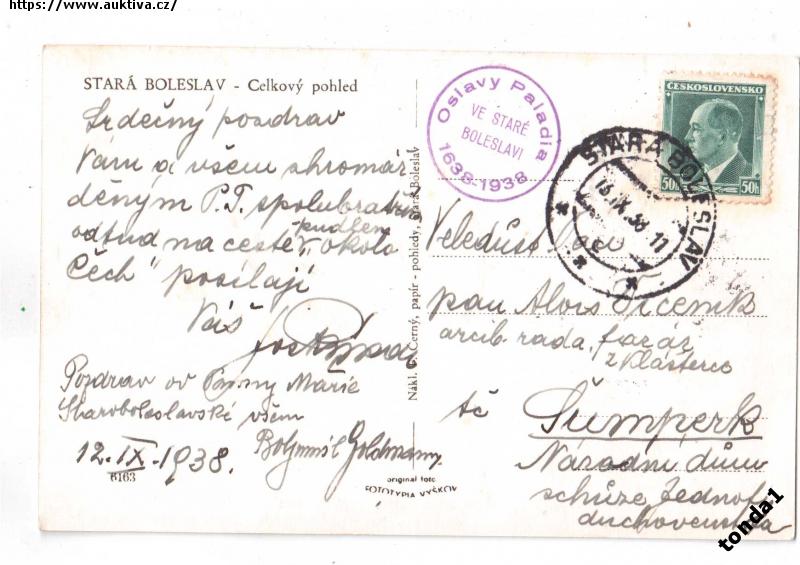 https://www.auktiva.cz/
STARÁ BOLESLAV - Celkový pohled
Srdečný pozdrav
Vám a všem shromáž
děným P.T. spolubratřím
odtud na cestě „kolo
Čech" posílají
Váš
Pozdrav od Panny Marie
Staroboleslavské všem
12.IX.1938. Bohumil Goldmann
6163
original foto
FOTOTYPIA VYŠKOV
Nákl. Černý, papír - pohledy, Stará Boleslav
Oslavy Paladia
VE STARÉ
BOLESLAVI
1638-1938
ČESKOSLOVENSKO
50h 50h
STARÁ BOLESLAV
IX.38 11
Veledůst. pan
pan Alois
arcib. rada, farář
z Klášterce
tč Šumperk
Národní dům
schůze Jednoty
duchovenstva
tonda1